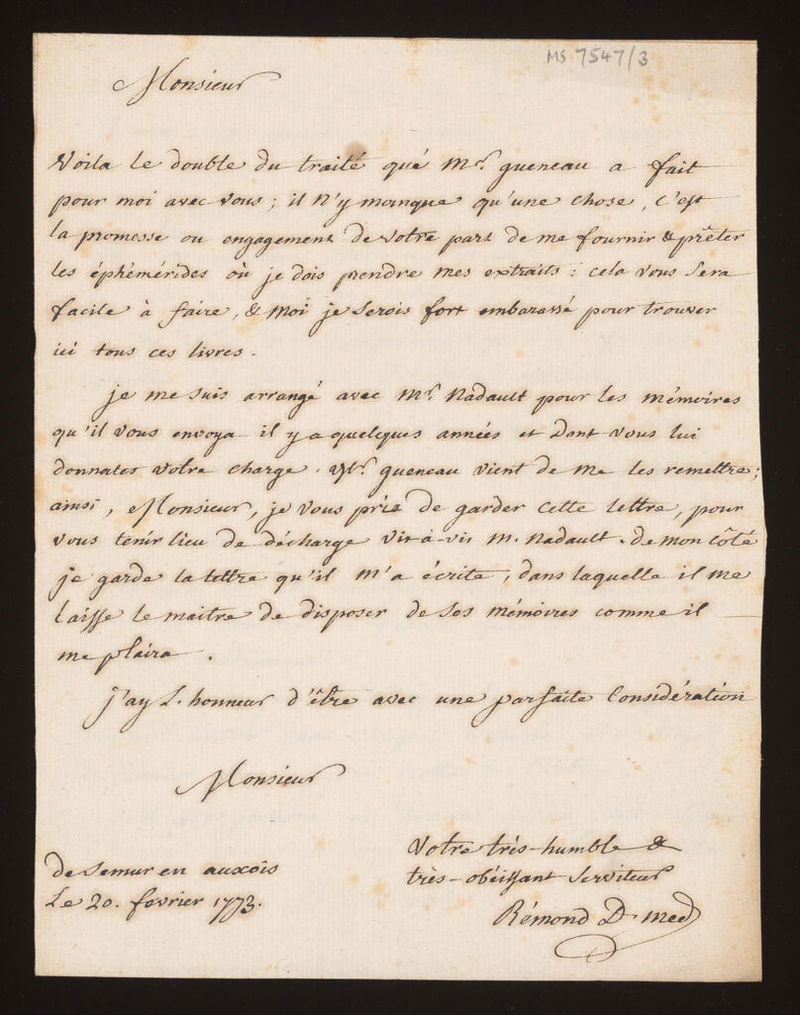 MS 7547/3
Monsieur
Voila le double du traité que Mr. gueneau a fait
pour moi avec vous ; il n'y manque qu'une chose, c'est
la promesse ou engagement de votre part de me fournir & prêter
les éphémérides où je dois prendre mes extraits : cela vous sera
facile à faire, & moi je serois fort embarassé pour trouver
ici tous ces livres.
je me suis arrangé avec Mr. Nadault pour les mémoires
qu'il vous envoya il y a quelques années et dont vous lui
donnates votre charge. Mr. gueneau vient de me les remettre ;
ainsi, Monsieur, je vous prie de garder cette lettre, pour
vous tenir lieu de décharge vis-à-vis M. Nadault. de mon côté
je garde la lettre qu'il m'a écrite, dans laquelle il me
laisse le maitre de disposer de ses mémoires comme il
me plaira.
j'ay l'honneur d'être avec une parfaite Considération
Monsieur
Votre très-humble &
très-obéissant Serviteur
Rémond D. Med
de Semur en auxois
Le 20. fevrier 1773.